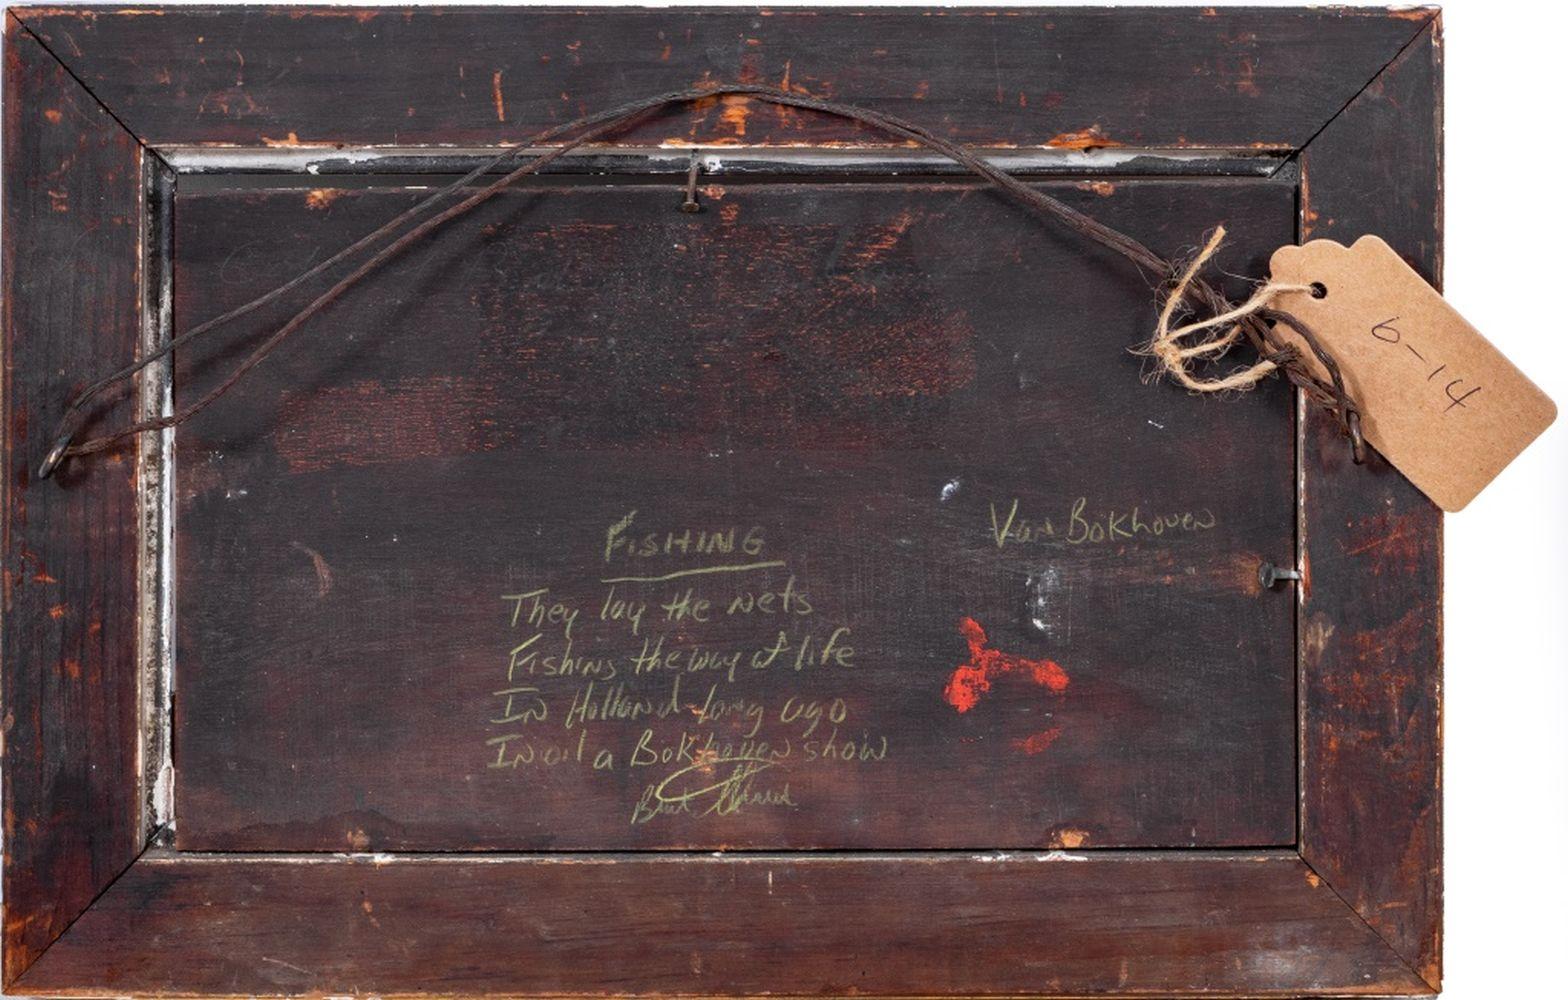 6-14
Van Bokhoven
FISHING
They lay the nets
Fishing the way of life
In Holland long ago
In oil a Bokhoven show